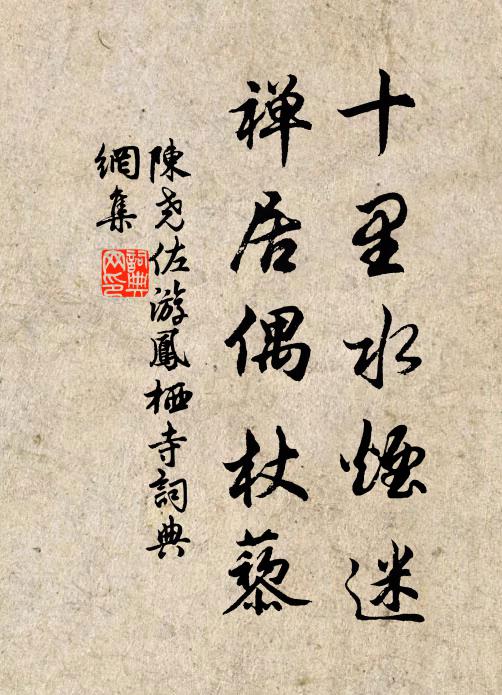 十里水煙迷
禅居偶杖藜
陳尧佐游鳳栖寺詞典
網集
詞典
网印